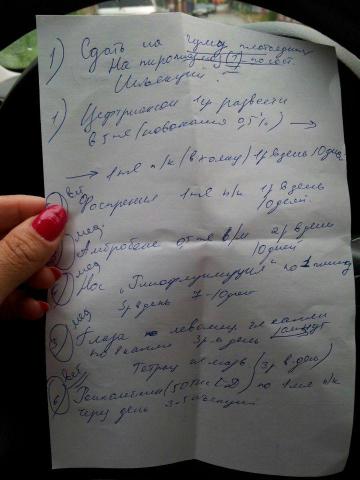 1) Сдать на чуму плотоядных
На пироплазмоз (1) по гост.
Инъекции:
1) Цефтриаксон 1гр развести
в 5 мл (новокаина 0,5%) →
→ 1 мл п/к (в холку) 1р в день 10 дней
вет
Фоспренил 1 мл п/к 1р в день
10 дней
мед
Амбробене 0,5 мл в/м 2р в день
10 дней
мед
Нос "Полифлуимуцил" по 1 пшик
3р в день 7-10 дней
мед
5) Глаза левомиц. гл капли
по 2 капли 3р в день 10 минут
Тетрац. гл мазь (3р в день)
вет
6) по 1 мл п/к
через день 3-5 инъекций